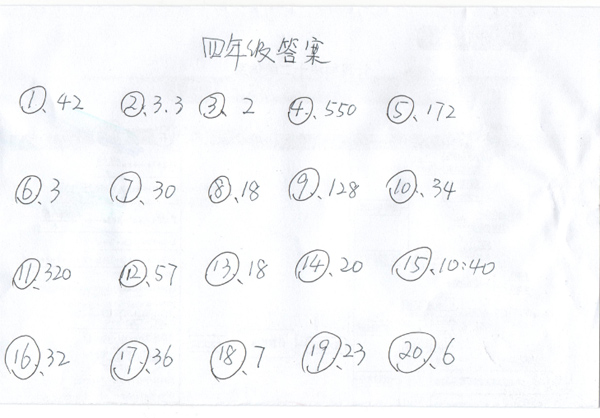 四年级答案
①、42 ②、3.3 ③、2 ④、550 ⑤、172
⑥、3 ⑦、30 ⑧、18 ⑨、128 ⑩、34
⑪、320 ⑫、57 ⑬、18 ⑭、20 ⑮、10:40
⑯、32 ⑰、36 ⑱、7 ⑲、23 ⑳、6